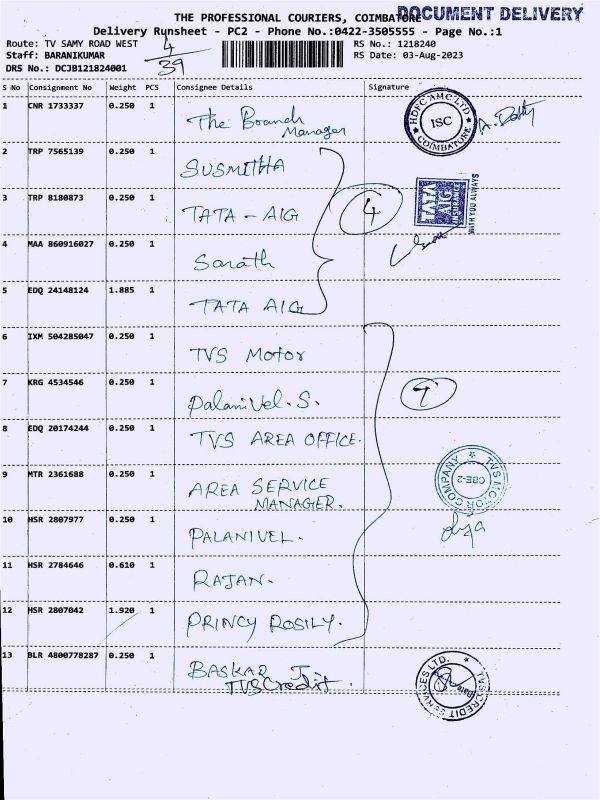 THE PROFESSIONAL COURIERS, COIMBATORE
DOCUMENT DELIVERY
Delivery Runsheet - PC2 - Phone No.:0422-3505555 - Page No.:1
Route: TV SAMY ROAD WEST
RS No.: 1218240
Staff: BARANIKUMAR
RS Date: 03-Aug-2023
DRS No.: DCJB121824001
4
39
S No Consignment No Weight PCS Consignee Details Signature
1 CNR 1733337 0.250 1 The Branch
Manager
HDFC AMC LTD
ISC
COIMBATORE
2 TRP 7565139 0.250 1 SUSMITHA
3 TRP 8180873 0.250 1 TATA - AIG
4
TATA
AIG
INSURANCE
WITH YOU ALWAYS
4 MAA 860916027 0.250 1 Sarath
5 EDQ 24148124 1.885 1 TATA AIG
6 IXM 504285047 0.250 1 TVS Motor
7 KRG 4534546 0.250 1 Palanivel. S.
8 EDQ 20174244 0.250 1 TVS AREA OFFICE.
9 MTR 2361688 0.250 1 AREA SERVICE
MANAGER.
TVS MOTOR COMPANY
CBE-2
10 HSR 2807977 0.250 1 PALANIVEL.
11 HSR 2784646 0.610 1 RAJAN.
12 HSR 2807042 1.920 1 PRINCY ROSILY.
13 BLR 4800778287 0.250 1 BASKAR J
TVS Credit.
TVS CREDIT SERVICES LTD.